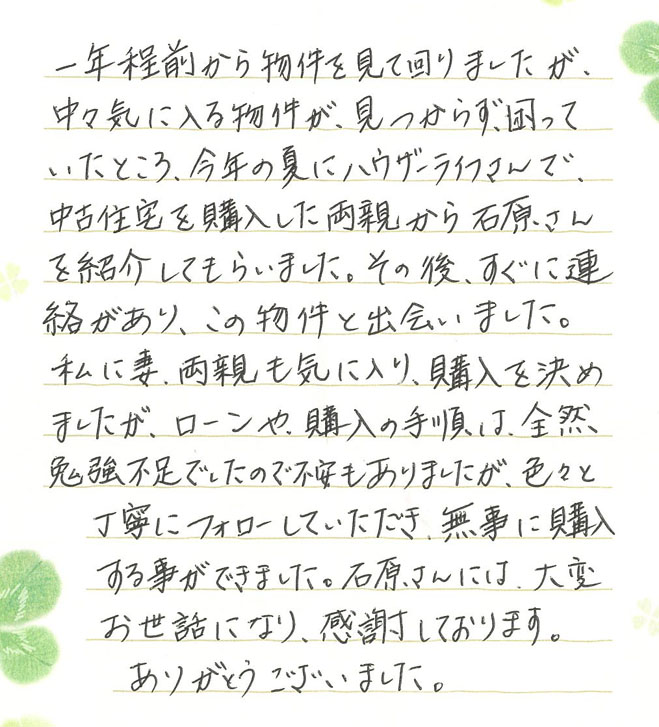 一年程前から物件を見て回りましたが、
中々気に入る物件が、見つからず、困って
いたところ、今年の夏にハウザーライフさんで、
中古住宅を購入した両親から石原さん
を紹介してもらいました。その後、すぐに連
絡があり、この物件と出会いました。
私に妻、両親も気に入り、購入を決め
ましたが、ローンや、購入の手順は、全然、
勉強不足でしたので不安もありましたが、色々と
丁寧にフォローしていただき、無事に購入
する事ができました。石原さんには、大変
お世話になり、感謝しております。
ありがとうございました。